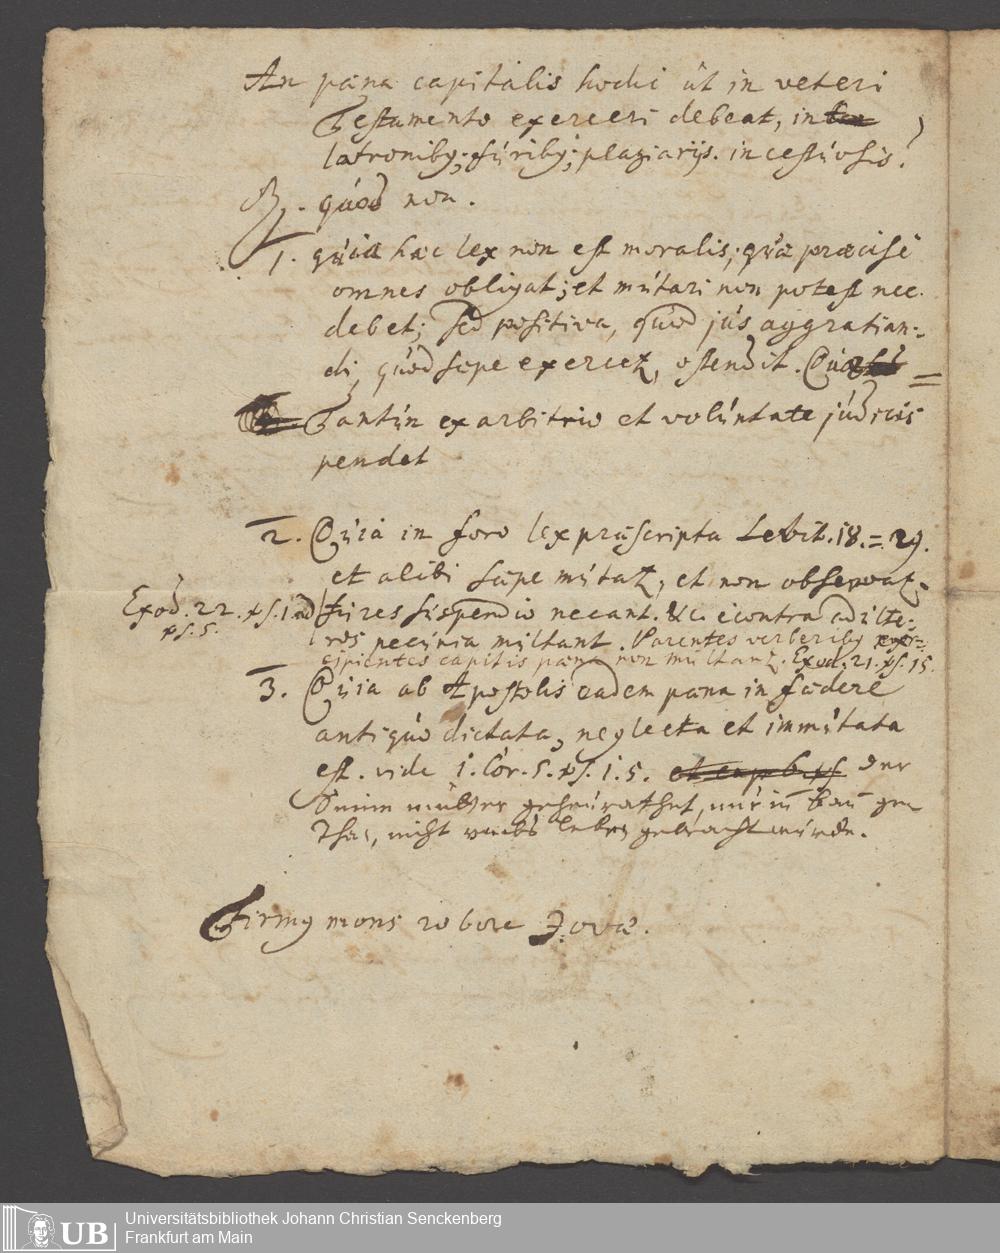 An pæna capitalis hodie ut in veteri
Testamento exerceri debeat, in
latroniby; furiby; plagiarijs. incestuosis?
R. quod non.
1. quia hæc lex non est moralis; quæ præcise
omnes obligat; et mutari non potest nec
debet; sed positiva, quod jus aggratian=
di, quod sæpe exercetz, ostendit.
Tantum ex arbitrio et voluntate judicis
pendet
2. Quia in foro lex præscripta Levit. 18. = 29.
et alibi sæpe mutatz, et non observatz;
Exod. 22. ps. 1. ad
ps. 5.
fures suspendio necant. &c. econtra adulte=
ros pecunia multant. Parentes verberiby
cipientes capitis pæna non multantz. Exod. 21. ps. 15.
3. Quia ab Apostolis eadem pæna in fædere
antiquo dictata, neglecta et immutata
est. vide 1. Cor. 5. ps. 1. 5. der
Seine mutter geheurathet, nur in ban ge
than, nicht umbs leben gebracht wurde.
Firmy mons robore Jovæ.
Universitätsbibliothek Johann Christian Senckenberg
UB Frankfurt am Main